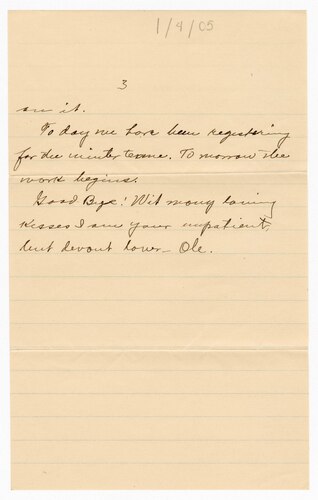 1/4/05
3
on it.
To day we have been registering
for the winter terme. To morrow the
work begins.
Good Bye! Wit many loving
kisses I am your impatient,
but devout lover – Ole.